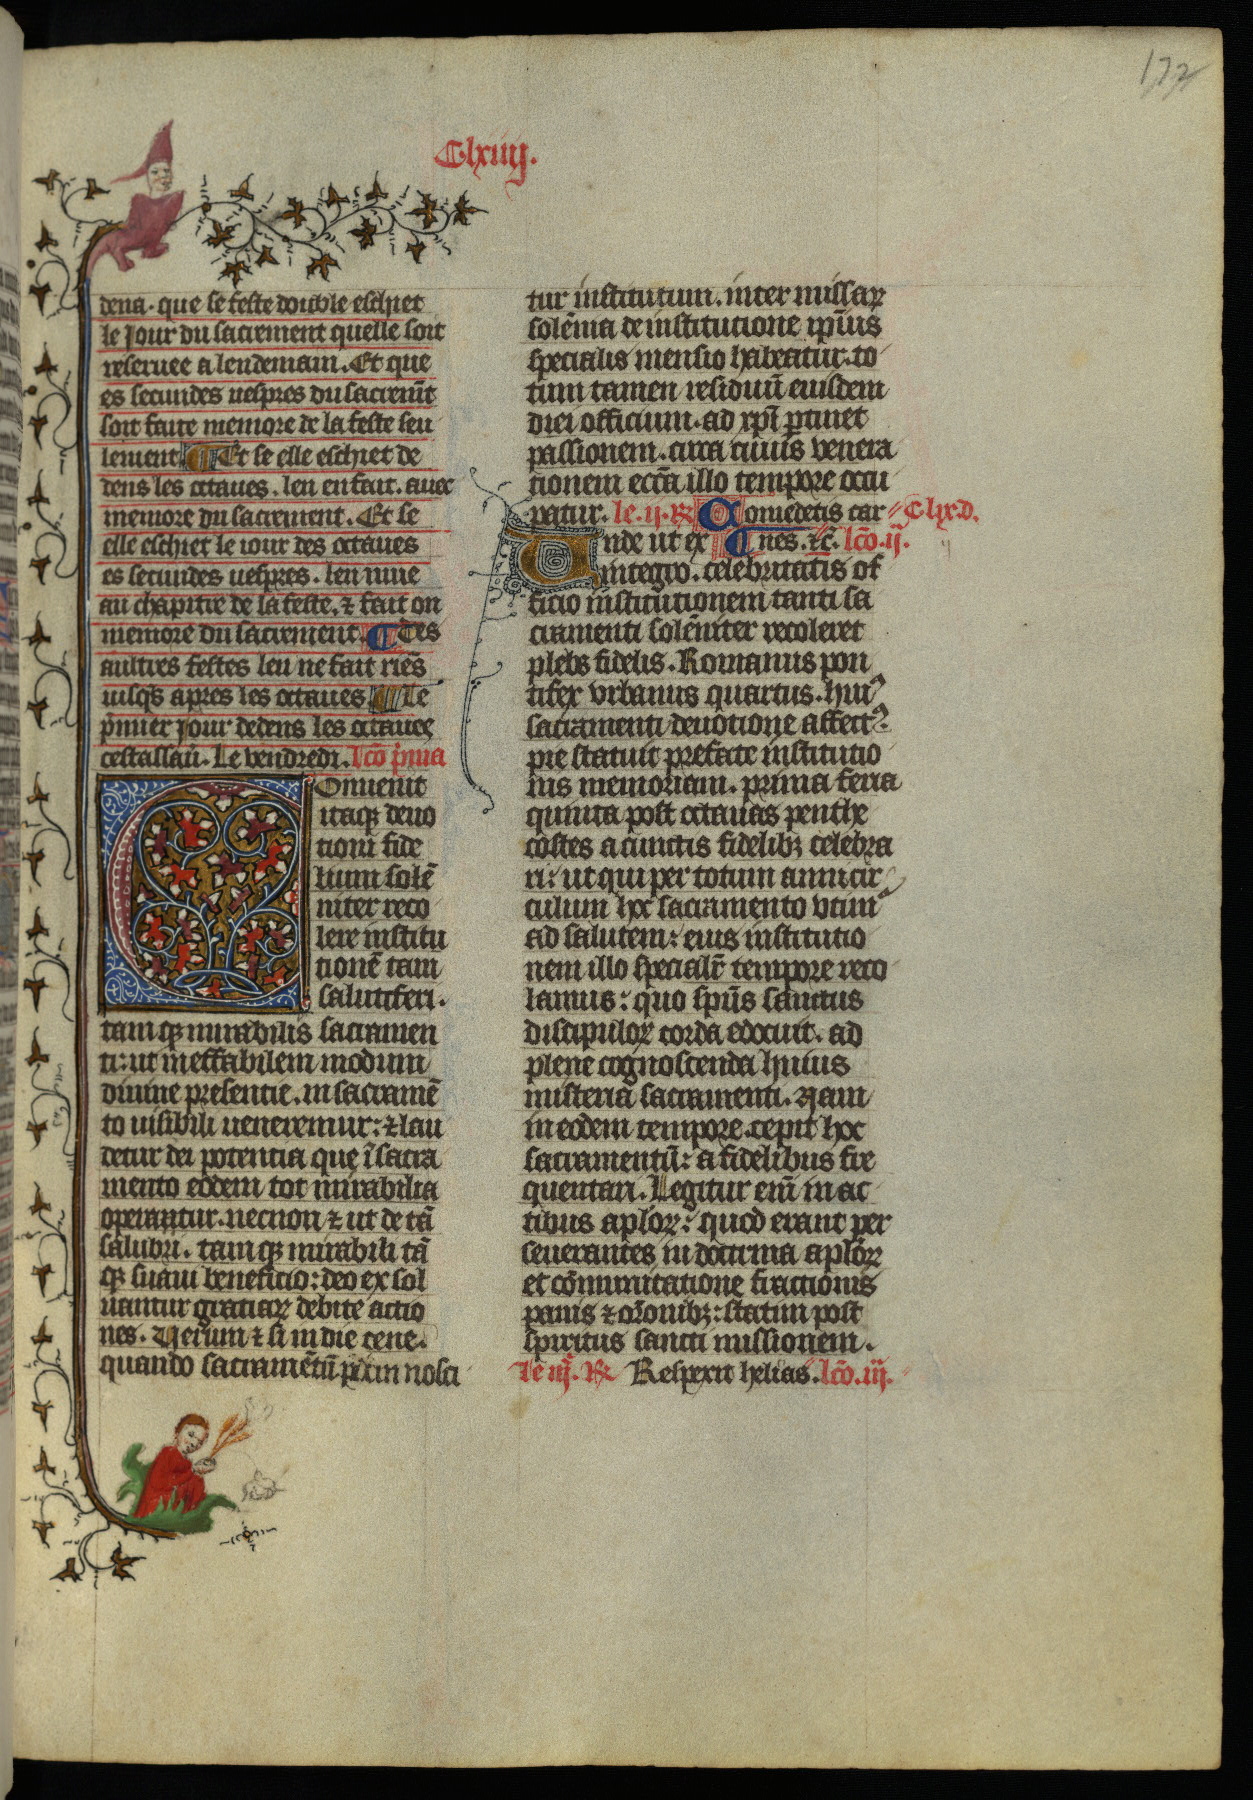 172
Clxiiij.
dena. que se feste double eschiet
le Jour du sacrement quelle soit
reseruee a lendemain. Et que
es secundes uespres du sacremt̄
soit faite memore de la feste seu
lement ¶ Et se elle eschiet de
dens les octaues. len en fait. auec
memore du sacrement. Et se
elle eschiet le iour des octaues
es secundes uespres. len mue
au chapitre de la feste. ⁊ fait on
memore du sacrement. ¶ Des
aultres festes len ne fait riēs
iusqs̄ apres les octaues ¶ Le
p̄mier Jour dedens les octaues
Le vendredi. lcō p̄ma
Conuenit
itaqꝫ deuo
tioni fide
lium solē
niter reco
lere institu
tionē tam
salutiferi.
tamqꝫ mirabilis sacramen
ti: ut ineffabilem modum
diuine presentie. in sacramē
to uisibili ueneremur: ⁊ lau
detur dei potentia que ī sacra
mento eodem tot mirabilia
operantur. necnon ⁊ ut de tā
salubri. tamqꝫ mirabili tā
qꝫ suaui beneficio: deo exsol
uantur gratiaꝝ debite actio
nes. Verum ⁊ si in die cene.
quando sacramētū p̄dim̄ nosci
tur institutum. inter missaꝝ
solēnia de institutione ip̄ius
specialis mensio habeatur. to
tum tamen residuū eiusdem
diei officium. ad xp̄i ptinet
passionem. circa cuius venera
tionem ecc̄a illo tempore occu
patur. le. ij. ℟ Comedetis car Clix.d.
Unde ut ex ¶ nes. ⁊c̄. lcō. ij.
integro. celebritatis of
ficio institutionem tanti sa
cramenti solēniter recoleret
plebs fidelis. Romanus pon
tifex vrbanus quartus. huiꝰ
sacramenti deuotione affectꝰ.
pie statuit prefate institutio
nis memoriam. prima feria
quinta post octauas penthe
costes a cunctis fidelibꝫ celebra
ri: ut qui per totum anni cir
culum hoc sacramento vtim̄
ad salutem: eius institutio
nem illo specialr̄ tempore reco
lamus: quo sp̄us sanctus
discipuloꝝ corda edocuit. ad
plene cognoscenda huius
misteria sacramenti. Nam
in eodem tempore. cepit hoc
sacramentū: a fidelibus fre
quentari. Legitur enī in ac
tibus ap̄loꝝ: quod erant per
seuerantes in doctrina ap̄loꝝ
et cōmunicatione fractionis
panis ⁊ or̄onibꝫ: statim post
spiritus sancti missionem.
le iij. ℟ Respexit helias. lcō. iij.